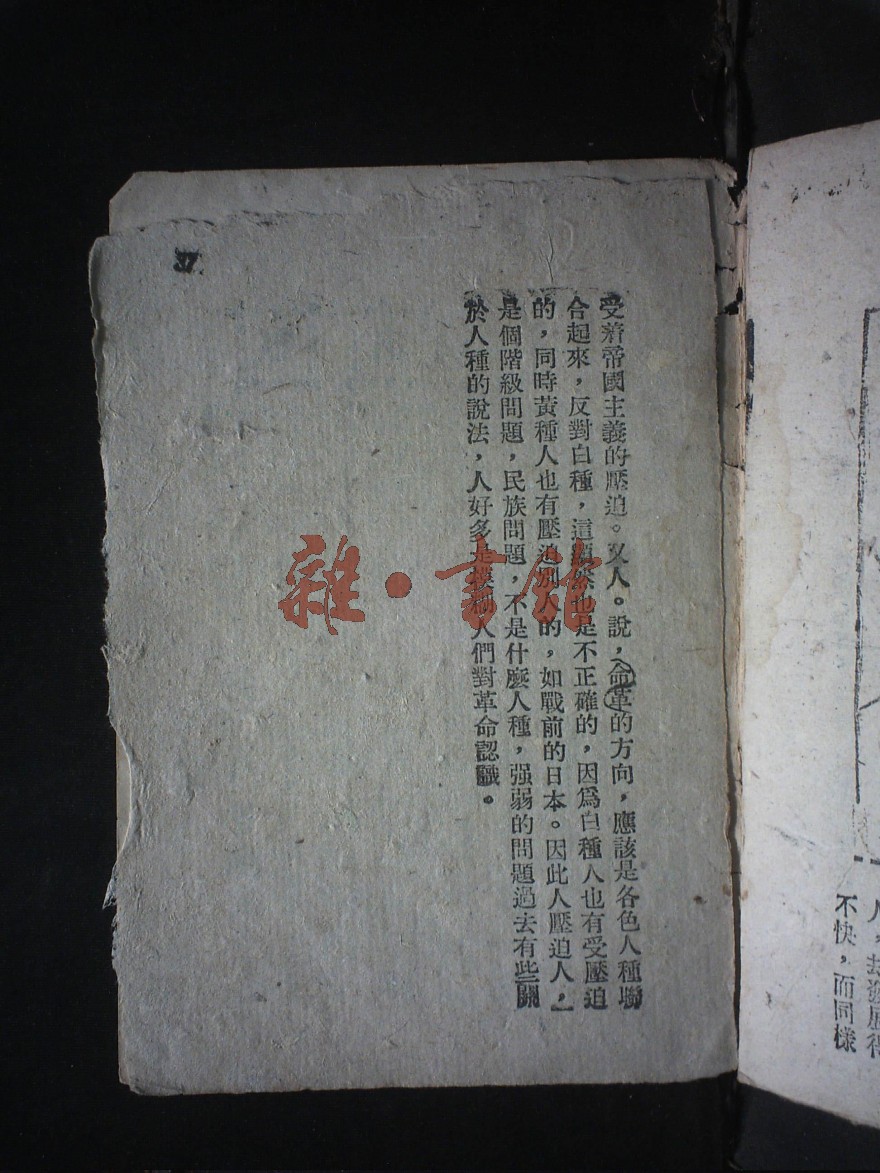 受着帝國主義的壓迫。又人。說，命革的方向，應該是各色人種聯
合起來，反對白種，這顯然也是不正確的，因爲白種人也有受壓迫
的，同時黃種人也有壓迫別人的，如戰前的日本。因此人壓迫人，
是個階級問題，民族問題，不是什麼人種，强弱的問題過去有些關
於人種的說法，人好多是模糊人們對革命認識。
37
雜·書館
人，却發展得
不快，而同樣